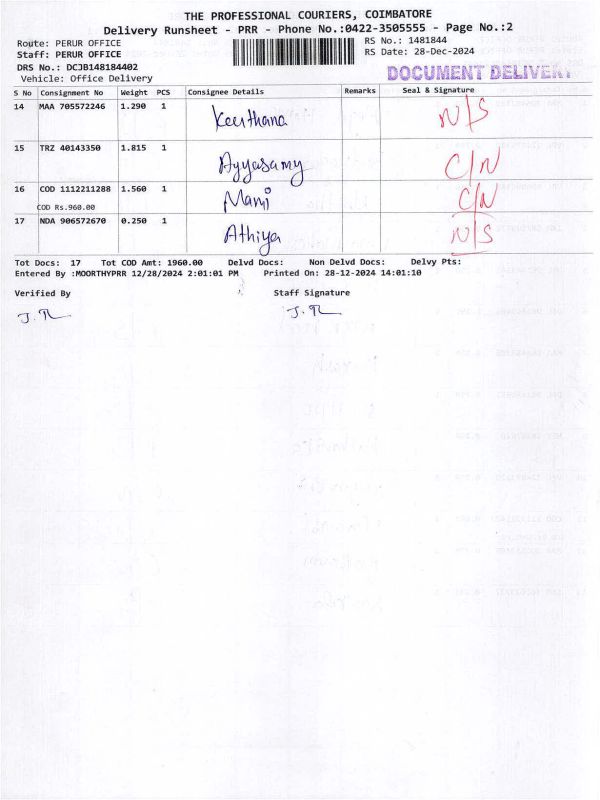 THE PROFESSIONAL COURIERS, COIMBATORE
Delivery Runsheet - PRR - Phone No.:0422-3505555 - Page No.:2
Route: PERUR OFFICE RS No.: 1481844
Staff: PERUR OFFICE RS Date: 28-Dec-2024
DRS No.: DCJB148184402 DOCUMENT DELIVERY
Vehicle: Office Delivery
S No Consignment No Weight PCS Consignee Details Remarks Seal & Signature
14 MAA 705572246 1.290 1 Keerthana N/S
15 TRZ 40143350 1.815 1 Ayyasamy C/N
16 COD 1112211288 1.560 1 Mani C/N
COD Rs.960.00
17 NDA 906572670 0.250 1 Athiya N/S
Tot Docs: 17 Tot COD Amt: 1960.00 Delvd Docs: Non Delvd Docs: Delvy Pts:
Entered By :MOORTHYPRR 12/28/2024 2:01:01 PM Printed On: 28-12-2024 14:01:10
Verified By Staff Signature